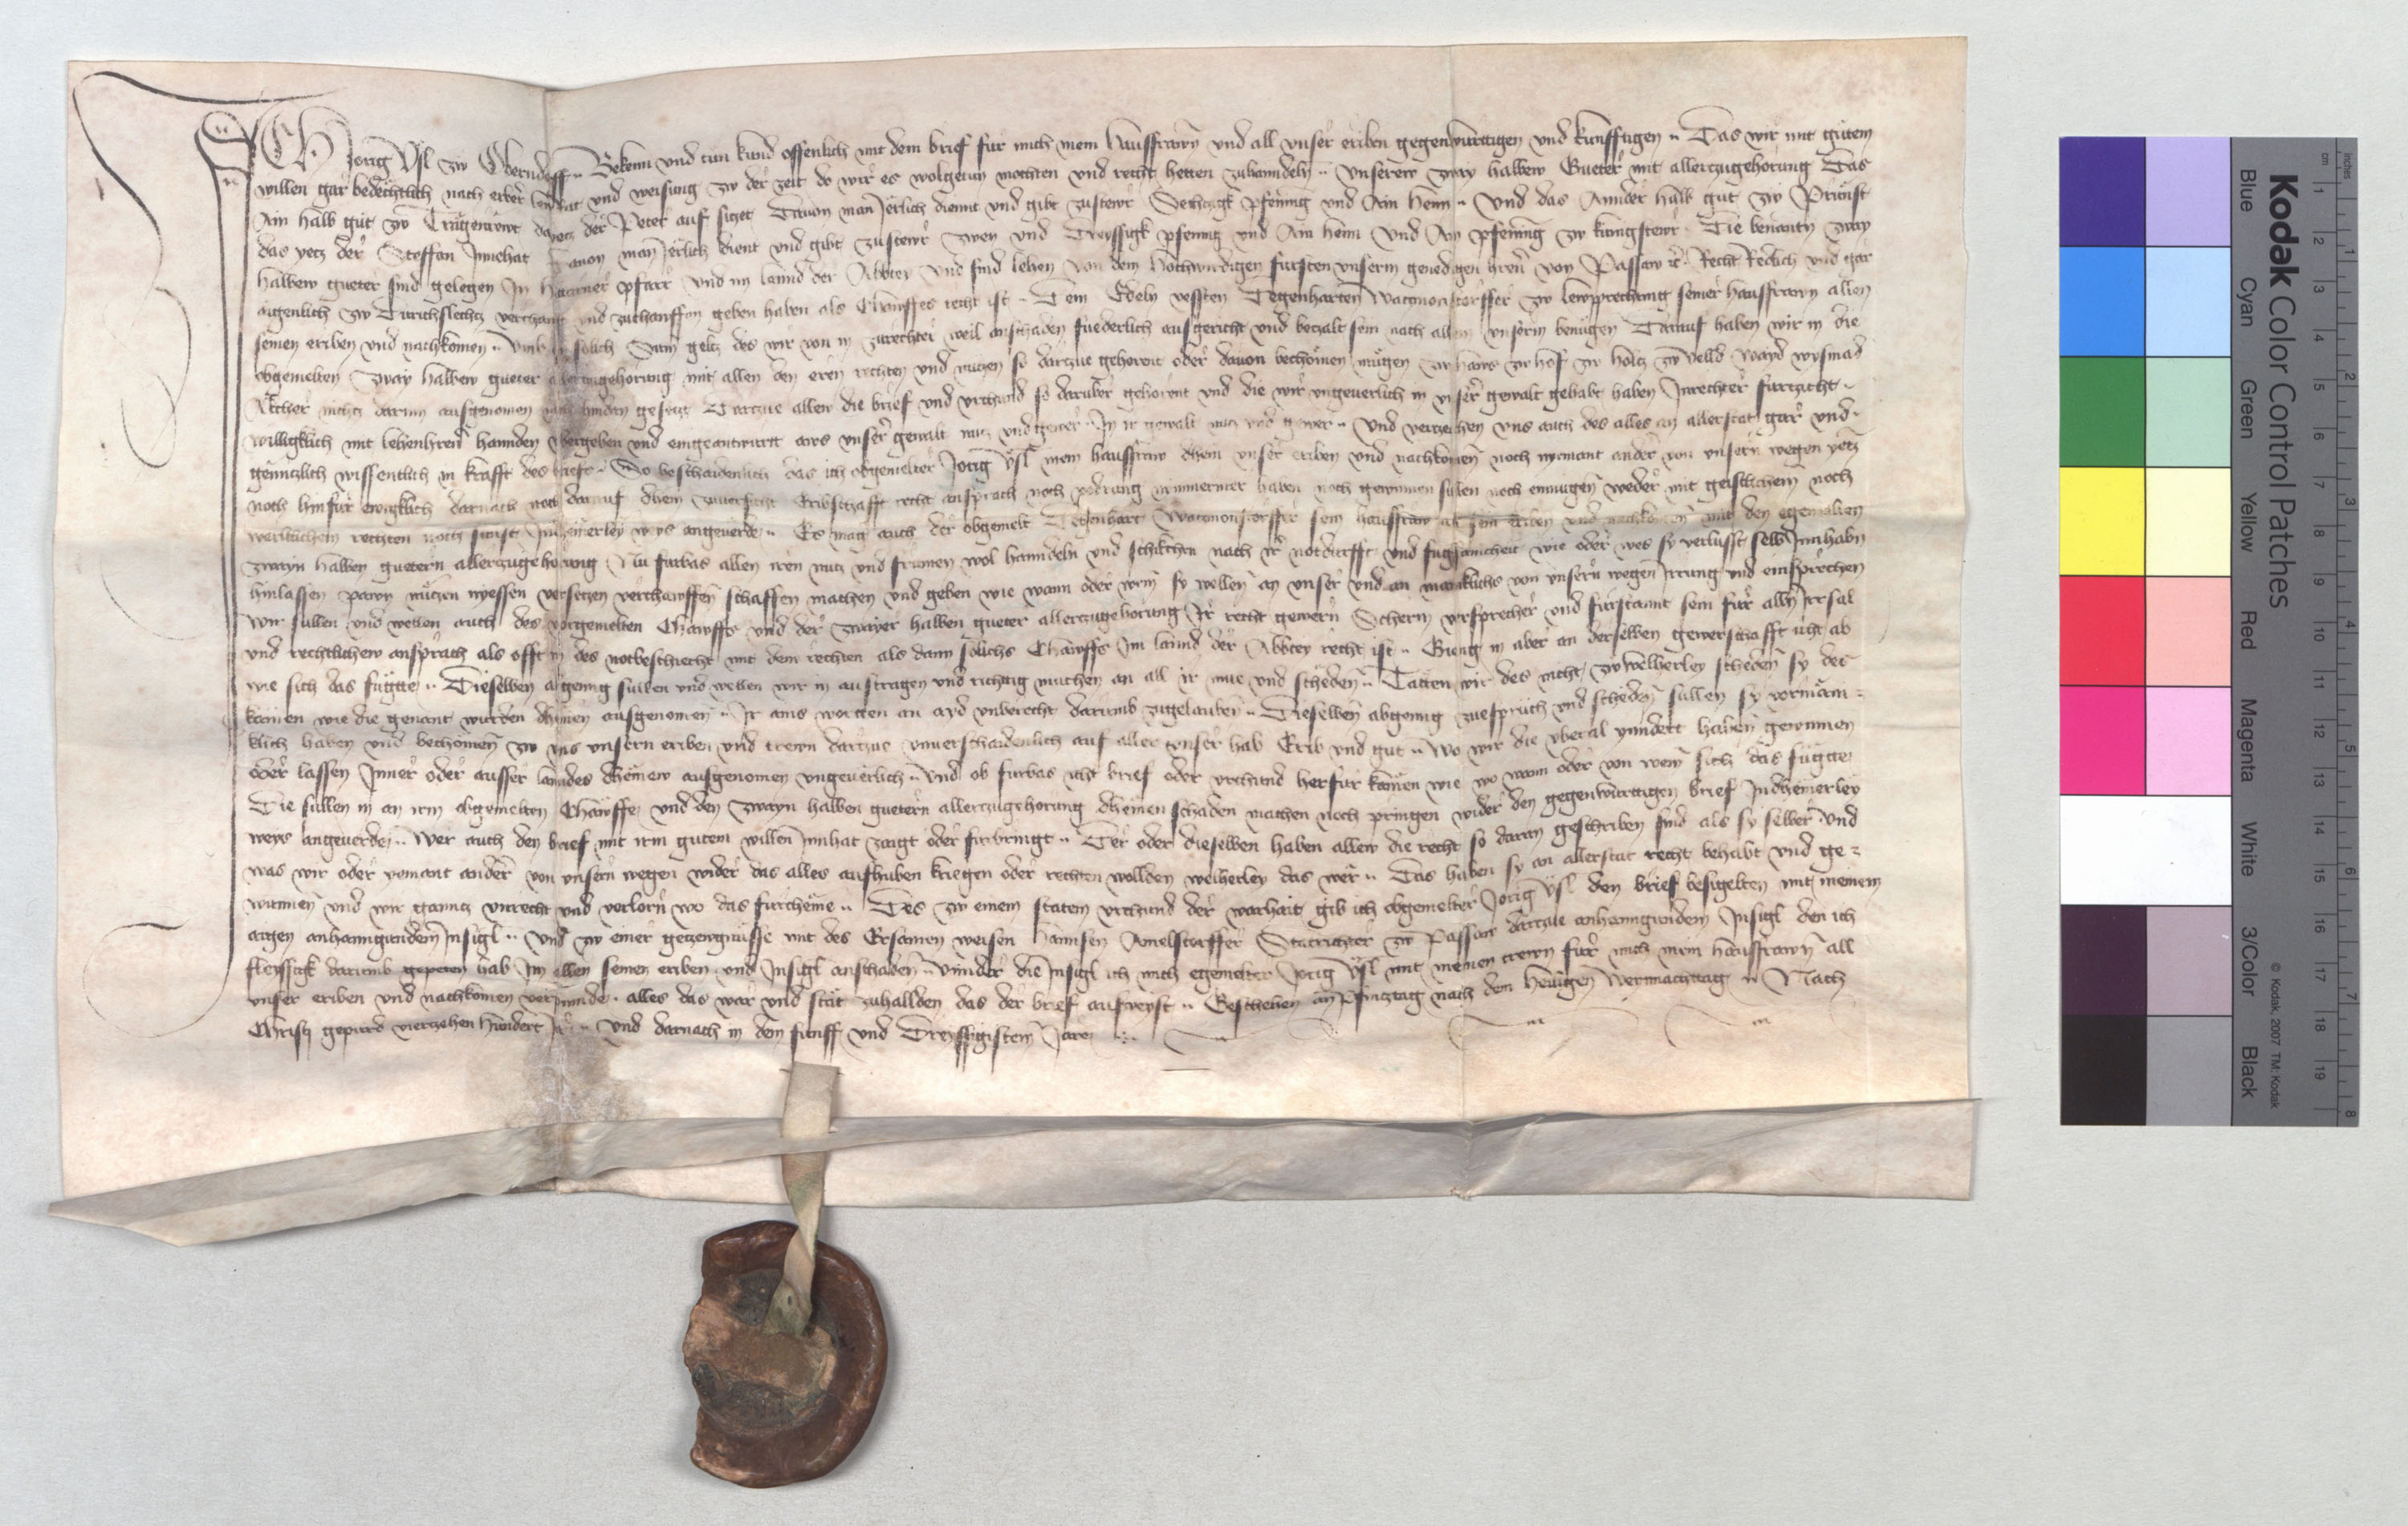 ICH Jorig Ysl zw Oberndorff Bekenn und tun kund offenlich mit dem brief fur mich mein Hausfrawn und all unser eriben gegenwürttigen und kunfftigen Das wir mit gutem
willen gar bedechtlich nach erber lewt rat und weisung zw der zeit do wir es wolgetun mochten und recht hetten zuhanndeln Unserew zway halbew Gueter mit allerzugehorung Das
Ain halb gut zw da yecz der Peter auf siczet Dauon man Jerlich diennt und gibt zustewr Sechczigk pfening und Ain Henn Und das Annder halb gut zw
das yecz der Steffan Innehat Dauon man Jerlich dient und gibt zustewr zwen und Dreyssigk pfening und Ain henn Und Ain pfening zw Die benantn zway
halbew gueter sind gelegen In pfarr und im lannd der Abbtey Und sind lehen von dem Hochwirdigen fursten unserm genedigen hren von Passaw Recht Redlich und gar
aigenlich zw Durichslechcz verchauft und zuchauffen geben haben als Chawffes recht ist Dem Edeln vessten Degenharten Waczmonstorffer zw seiner hausfrawn allen
seinen eriben und nachkomen Umb ein solich Sum gelcz des wir von in zurechter weil anschaden fuederlich ausgericht und beczalt sein nach allem unserm benügen Darauf haben wir in die
obgemelten zway halbew gueter allerzugehorung mit allen den eren rechten und nuczen so darzue gehorent oder dauon bechomen mügen zw haws zw hof zw holcz zw velld wayd wysmad
Akcher nichcz darinn ausgenomen noch hindan geseczt Darzue allew die brief und urchund so daruber gehorent und die wir ungeuerlich in unser gewalt gehabt haben Inrechter furczicht
williklich mit lehenhren hannden ubergeben und eingeantwurtt aws unser gewalt nucz und gewer In ir gewalt nucz und gewer Und verczeihen uns auch des alles an allerstat gar und
genntzlich wissentlich in krafft des briefs So beschaidenlich das ich obgemelter Jorig Ysl mein hausfraw dhein unser eriben und nachkomen noch nyemant ander von unsern wegen yecz
noch hinfur ewigklich darnach noch darauf dhein zuuersicht Eribschafft recht ansprach noch vodrung nymmermer haben noch gewinnen sulen noch enmugen weder mit geistlichem noch
werltlichem rechten noch sunst Indheinerley weys angeuerde Es mag auch der obgemelt Degenhart Waczmonstorffer sein hausfraw all sein eriben und nachkomen mit den egemelten
zwayn halben guetern allerzugehorung Nu furbas allen iren nucz und frumen wol hanndeln und schikchen nach ir notdurfft und fugsamcheit wie oder wes sy verlusst selb Innhabn
hinlassen pawn nüczen nyessen verseczen verchawffen schaffen machen und geben wie wann oder wem sy wellen an unser und an mänklichs von unsern wegen Irrung und einsprechen
Wir sullen und wellen auch des vorgemelten Chawffs und der zwayer halben gueter allerzugehorung Ir recht gewern Scherm vrsprecher und furstannt sein fur alln Irrsal
und rechtlichew ansprach als offt in des notbeschiecht mit dem rechten als dann solichs Chawffs Im lannd der Abbtey recht ist Gieng in aber an derselben gewerschafft icht ab
wie sich das fugtte Dieselben abgenng sullen und wellen wir in austragen und richtig machen an all ir mue und scheden Taten wir des nicht zw welherley scheden sy des
kömen wie die genant wurden dheinen ausgenomen Ir ains wortten an ayd unberecht darumb zugelauben Dieselben abgenng zuespruch und scheden sullen sy vormäni-
klich haben und bechomen zw uns unsern eriben und trewn darzue unuerschaidenlich auf aller unser hab Erib und gut Wo wir die uberal ynndert haben gewinnen
oder lassen Inner oder ausser lanndes dheinew ausgenomen ungeuerlich Und ob furbas icht brief oder urchund herfur kömen wie wo wann oder von wem sich das fugtte
Die sullen in an irm obgemelten Chawffe und den zwayn halben guetern allerzugehorung dheinen schaden machen noch pringen wider den gegenwurttigen brief Indheinerley
weys angeuerde Wer auch den brief mit irm gutem willen Innhat zaigt oder furbringt Der oder dieselben haben allew die recht so daran geschriben sind als sy selber Und
was wir oder yemant ander von unsern wegen wider das alles aufhuben kriegen oder rechten wollden welherley das wer Das haben sy an allerstat recht behabt und ge-
wunnen und wir ganntz unrecht und verlorn wo das furchöme Des zw einem staten urchund der warhait gib ich obgemelter Jorig Ysl den brief besigelten mit meinem
aigen anhanngundem Insigl Und zw einer geczewgnüsse mit des Ersamen weisen Hannsen Amelstorffer Statrichter zw Passaw darzue anhanngundem Insigl den ich
fleyssigk darumb gepeten hab Im allen seinen eriben und Insigl anschaden Unnder die Insigl ich mich egemelter Jorig Ysl mit meinen trewn fur mich mein hausfrawn all
unser eriben und nachkomen verpinnde alles das war und stät zuhallden das der brief aufweyst Geschehen an Pfincztag nach dem heiligen Weinnachttag Nach
Christi gepurd vierzehen hundert Jar Und darnach in dem funff und Dreyssigistem Jare
Kodak Color Control Patches
Blue Cyan Green Yellow Red Magenta White 3/Color Black
© Kodak, 2007 TM: Kodak
cm 1 2 3 4 5 6 7 8 9 10 11 12 13 14 15 16 17 18 19
inches 1 2 3 4 5 6 7 8